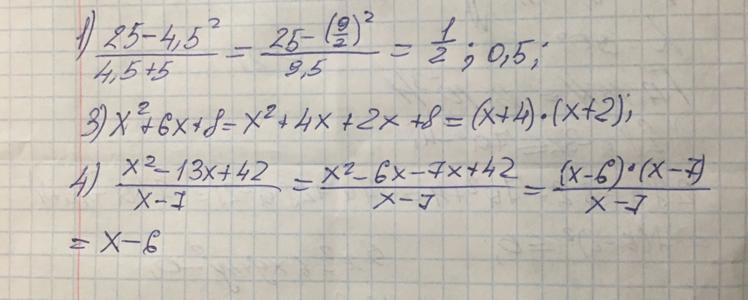 1) (25 - 4,5²)/(4,5+5) = (25 - (9/2)²)/(9,5) = 1/2; 0,5;
3) x²+6x+8 = x²+4x+2x+8 = (x+4)·(x+2);
4) (x²-13x+42)/(x-7) = (x²-6x-7x+42)/(x-7) = ((x-6)·(x-7))/(x-7)
= x-6